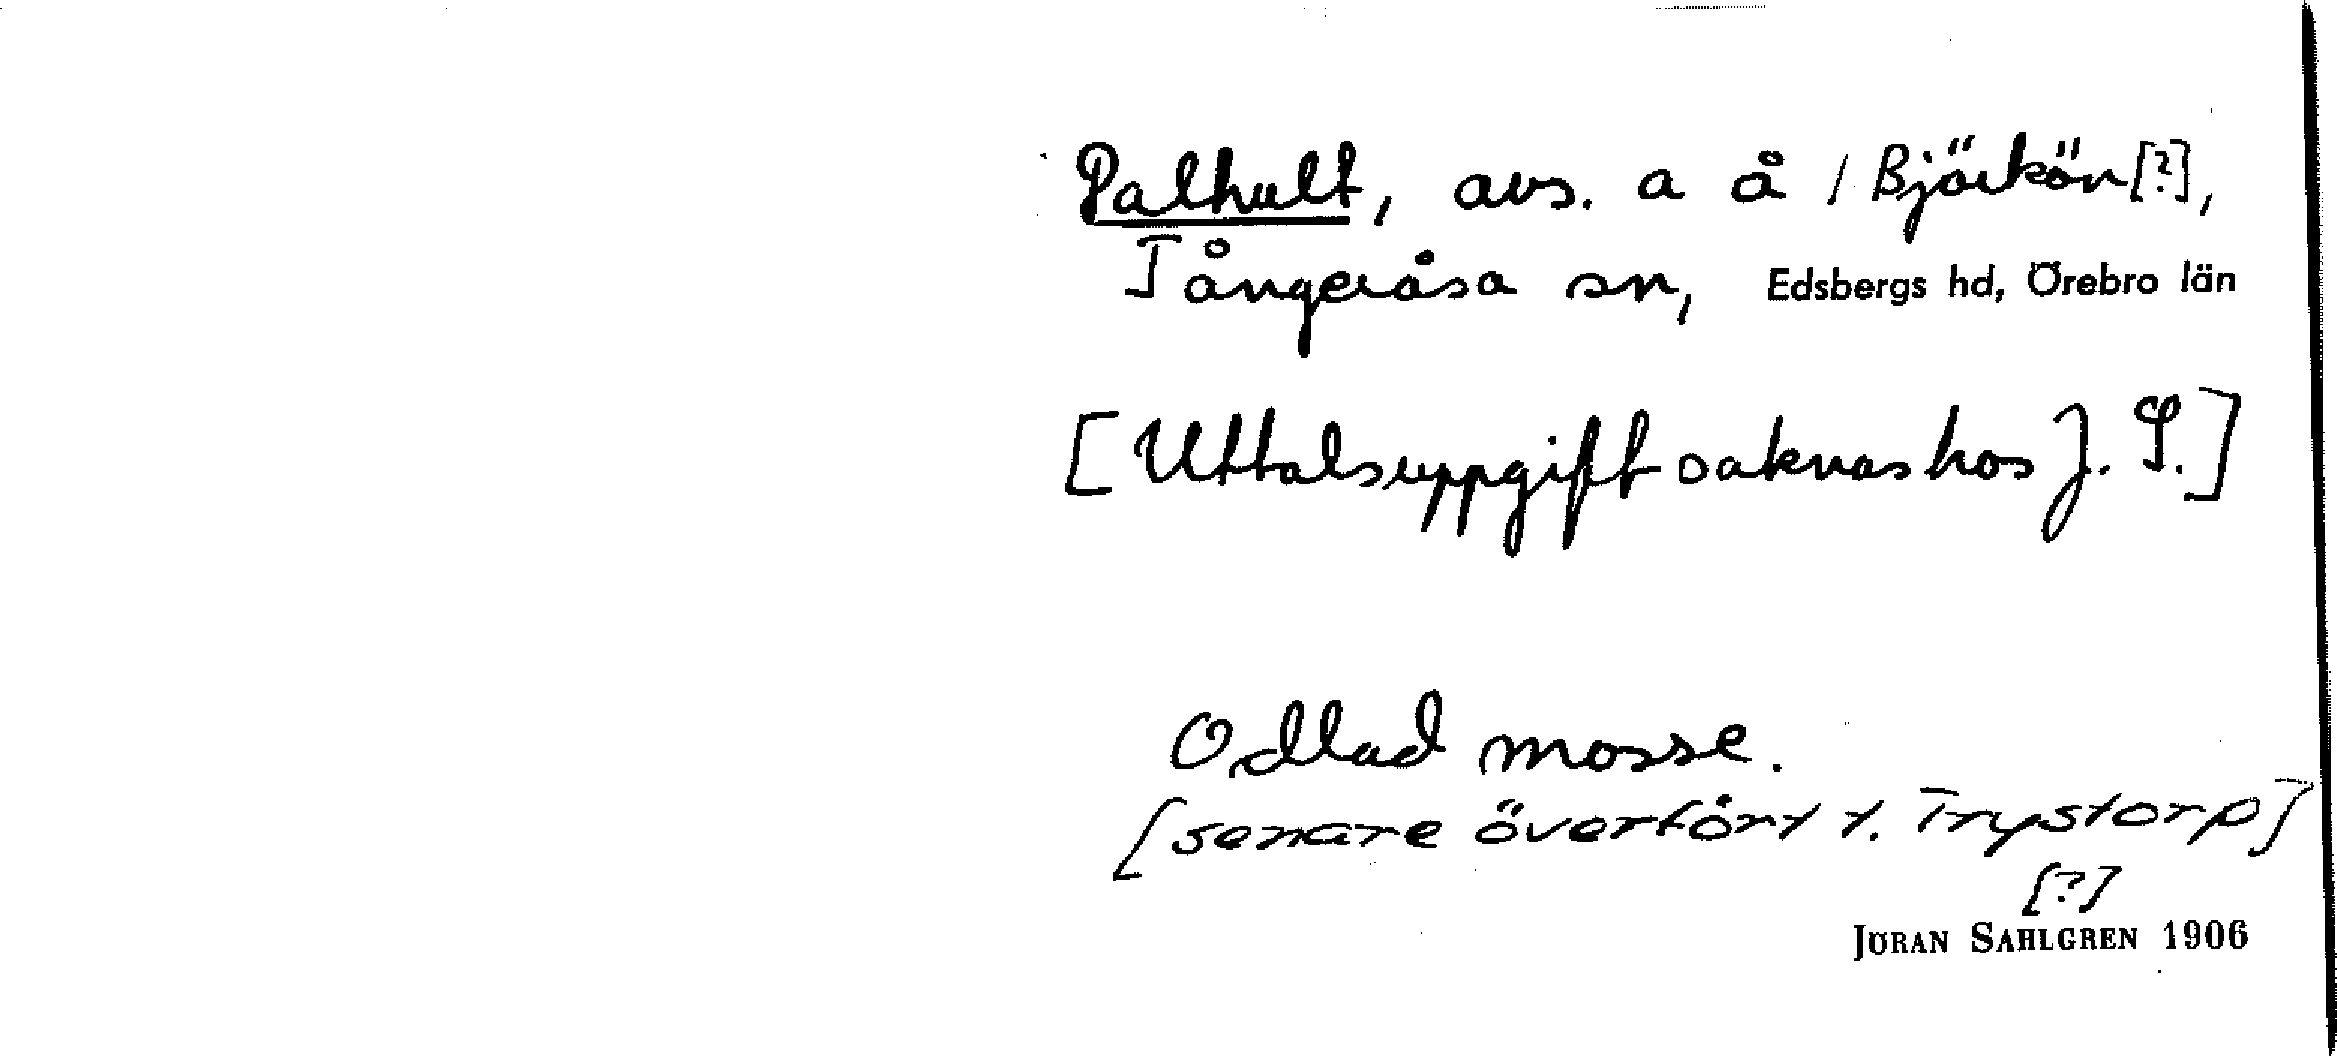 Palhult, avs. a å / Björkön [?],
Tångeråsa sn, Edsbergs hd, Örebro län
[Uttalsuppgift saknas hos J. S.]
Odlad mosse.
[senare överfört t. Trystorp]
[?]
JÖRAN SAHLGREN 1906